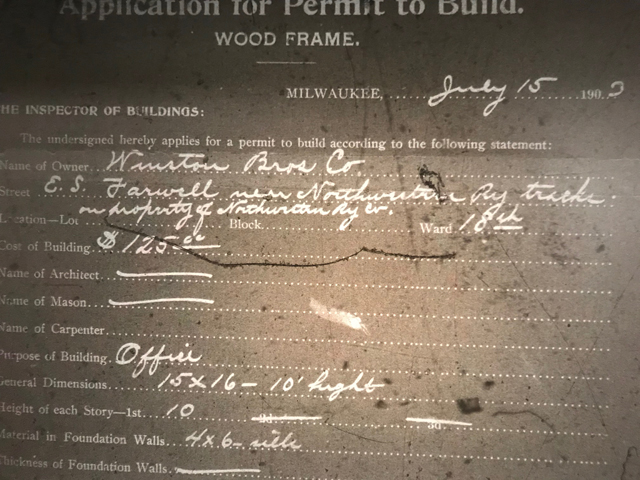 Application for Permit to Build.
WOOD FRAME.
MILWAUKEE, July 15 1903
THE INSPECTOR OF BUILDINGS:
The undersigned hereby applies for a permit to build according to the following statement:
Name of Owner Winston Bros Co.
Street E. S. Farwell near Northwestern Ry tracks.
on property of Northwestern Ry Co.
Location—Lot Block Ward 18th
Cost of Building $125.00
Name of Architect
Name of Mason
Name of Carpenter
Purpose of Building Office
General Dimensions 15x16 - 10' hight
Height of each Story—1st 10 2d 3d
Material in Foundation Walls 4x6 - sills
Thickness of Foundation Walls